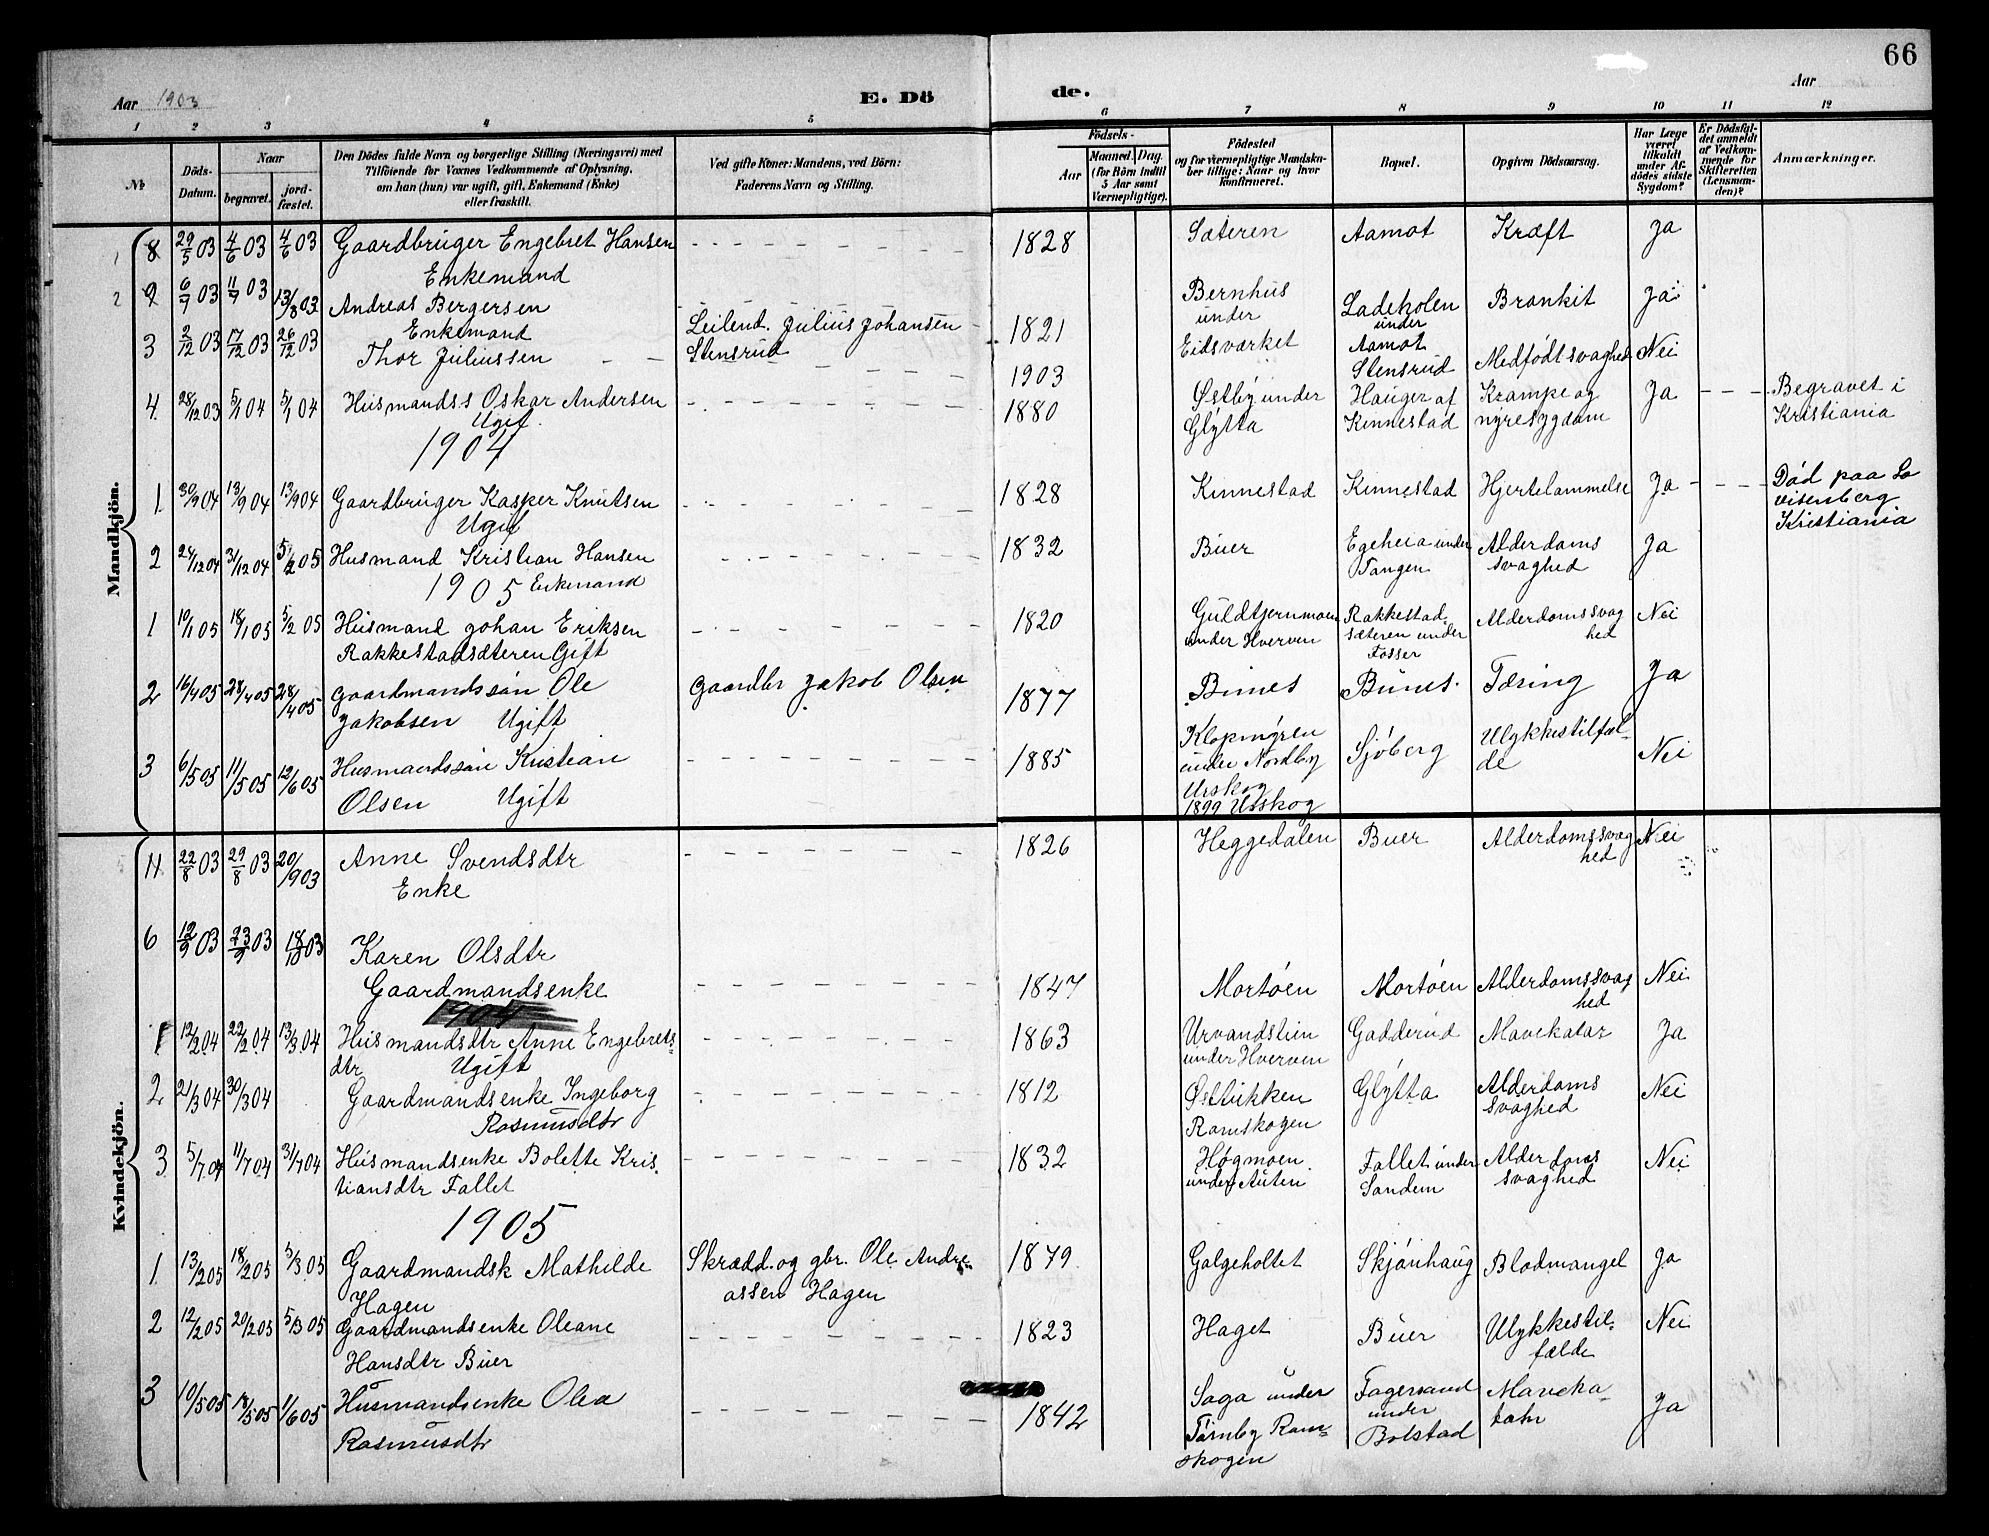 66
Aar 1903
E. Dö
de.
Aar
1 2 3 4 5 6 7 8 9 10 11 12
№
Döds-
Datum.
Naar
begravet.
jord-
fæstet.
Den Dödes fulde Navn og borgerlige Stilling (Næringsvei) med
Tilföiende for Voxnes Vedkommende af Oplysning,
om han (hun) var ugift, gift, Enkemand (Enke)
eller fraskilt.
Ved gifte Koner: Mandens, ved Börn:
Faderens Navn og Stilling.
Födsels-
Aar
Maaned. Dag.
(for Börn indtil
5 Aar samt
Værnepligtige).
Födested
og for værnepligtige Mandska-
ber tillige: Naar og hvor
konfirmeret.
Bopæl.
Opgiven Dödsaarsag.
Har Læge
været
tilkaldt
under Af-
dödes sidste
Sygdom?
Er Dödsfal-
det anmeldt
af Vedkom-
mende for
Skifteretten
(Lensman-
den)?
Anmærkninger.
Mandkjön.
8 29/5 03 4/6 03 4/6 03 Gaardbruger Engebret Hansen 1828 Sæteren Aamot Kræft Ja
Enkemand
2 6/7 03 11/7 03 13/8 03 Andreas Bergersen 1821 Bernhus Ladeholen Bronkit Ja
Enkemand under under
Eidsværket Aamot
3 2/12 03 17/12 03 26/12 03 Thor Juliussen Leilend. Julius Johansen 1903 Stensrud Medfödt svaghed Nei
Stensrud
4 28/12 03 5/1 04 5/1 04 Husmandss Oskar Andersen 1880 Østby under Hauger af Krampe og Ja Begravet i
Ugif. Glýtta Kinnestad nyresygdom Kristiania
1904
1 30/9 04 13/9 04 13/9 04 Gaardbruger Kasper Knutsen 1828 Kinnestad Kinnestad Hjertelammelse Ja Död paa Lo
Ugif visenberg
Kristiania
2 24/12 04 31/12 04 5/2 05 Husmand Kristian Hansen 1832 Buer Egeheia under Alderdoms Ja
1905 Enkemand Tangen svaghed
1 10/1 05 18/1 05 5/2 05 Husmand Johan Eriksen 1820 Guldtjernmoen Rakkestad- Alderdomssvag Nei
Rakkestadsæteren Gift under Hverven sæteren under hed
Fosser
2 16/4 05 28/4 05 28/4 05 Gaardmandssön Ole Gaardbr Jakob Olsen 1877 Bunes Bunes. Tæring Ja
Jakobsen Ugift
3 6/5 05 11/5 05 12/6 05 Husmandssön Kristian 1885 Klopmýren Sjöberg Ulykkestilfæl- Nei
Olsen Ugift under Nordby de
Urskog
1899 Urskog
Kvindekjön.
22/8 03 29/8 03 20/9 03 Anne Svendsdtr 1826 Heggedalen Buer Alderdomssvag Nei
Enke hed
6 12/9 03 23/9 03 18/10 03 Karen Olsdtr
Gaardmandsenke 1847 Mortöen Mortöen Alderdomssvag Nei
1904 hed
1 12/2 04 22/2 04 13/3 04 Husmandsdtr Anne Engebrets- 1863 Urvandslien Gadderud Mavekatar Ja
dtr Ugift under Hverven
2 21/3 04 30/3 04 Gaardmandsenke Ingeborg 1812 Øststikken Glýtta Alderdoms Nei
Rasmusdtr Romskogen svaghed
3 5/7 04 11/7 04 31/7 04 Husmandsenke Bolette Kris- 1832 Högmoen Fallet under Alderdoms Nei
tiansdtr Fallet under Auten Sandem svaghed
1905
1 13/2 05 18/2 05 5/3 05 Gaardmandsk Mathilde Skrædd. og gbr. Ole Andre- 1879 Galgeholtet Skjönhaug Blodmangel Ja
Hagen assen Hagen
2 12/2 05 20/2 05 5/3 05 Gaardmandsenke Oleane 1823 Haget Buer Ulykkestil- Nei
Hansdtr Buer fælde
3 10/5 05 18/5 05 11/6 05 Husmandsenke Olea 1842 Saga under Fagersand Maveka- Ja
Rasmusdtr Törnby Rom- under tahr
skogen Bolstad